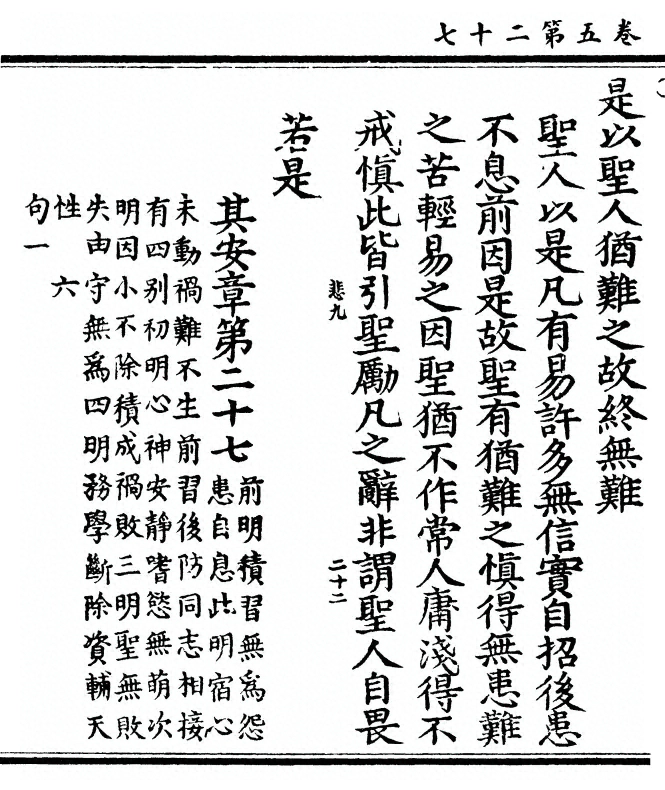 卷五第二十七
是以聖人猶難之故終無難
聖人以是凡有易許多無信實自招後患
不息前因是故聖有猶難之慎得無患難
之苦輕易之因聖猶不作常人庸淺得不
戒慎此皆引聖勵凡之辭非謂聖人自畏
悲九 二十二
若是
其安章第二十七
前明積習無為怨
患自息此明宿心
未動禍難不生前習後防同志相接
有四别初明心神安靜嗜慾無萌次
明因小不除積成禍敗三明聖無敗
失由守無為四明務學斷除資輔天
性 六
句一